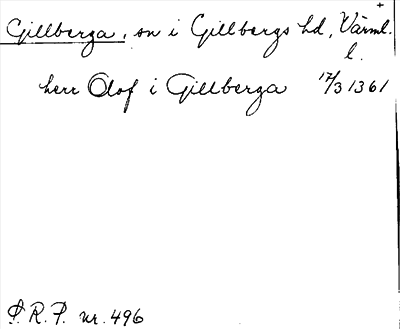 Gillberga, sn i Gillbergs hd, Värml.
l.
herr Olof i Gillberga 17/3 1361
S.R.P. nr. 496